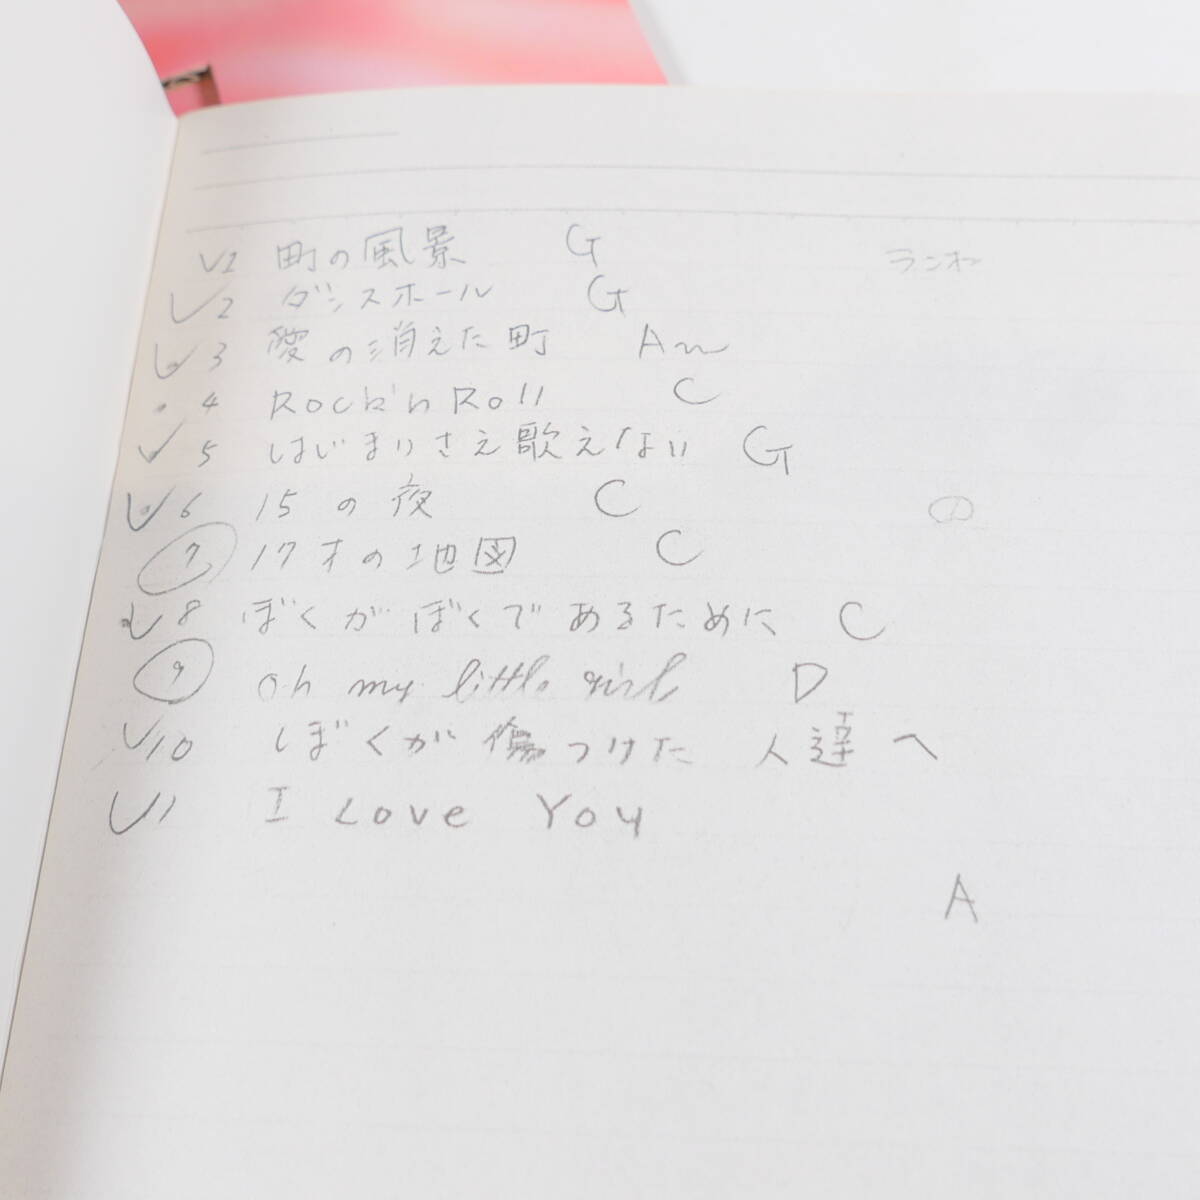 ✓1 町の風景 G
✓2 ダンスホール G
✓3 愛の消えた町 Am
・4 Rock'n Roll C
✓5 はじまりさえ歌えない G
✓6 15の夜 C
7 17才の地図 C
✓8 ぼくがぼくであるために C
9 oh my little girl D
✓10 ぼくが傷つけた 人達へ
✓11 I Love You
A